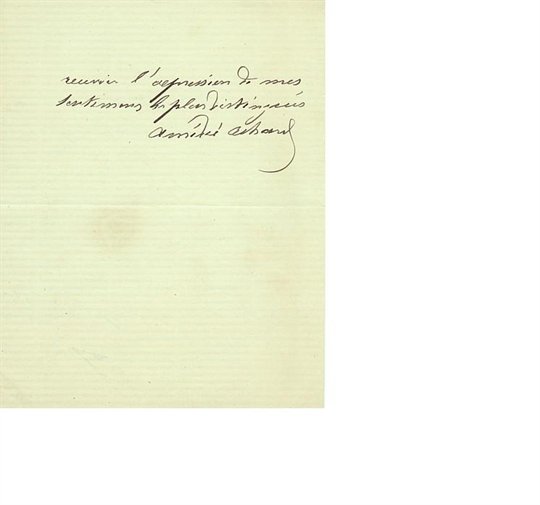 recevoir l'expression de mes
sentimens les plus distingués
Amédée Achard